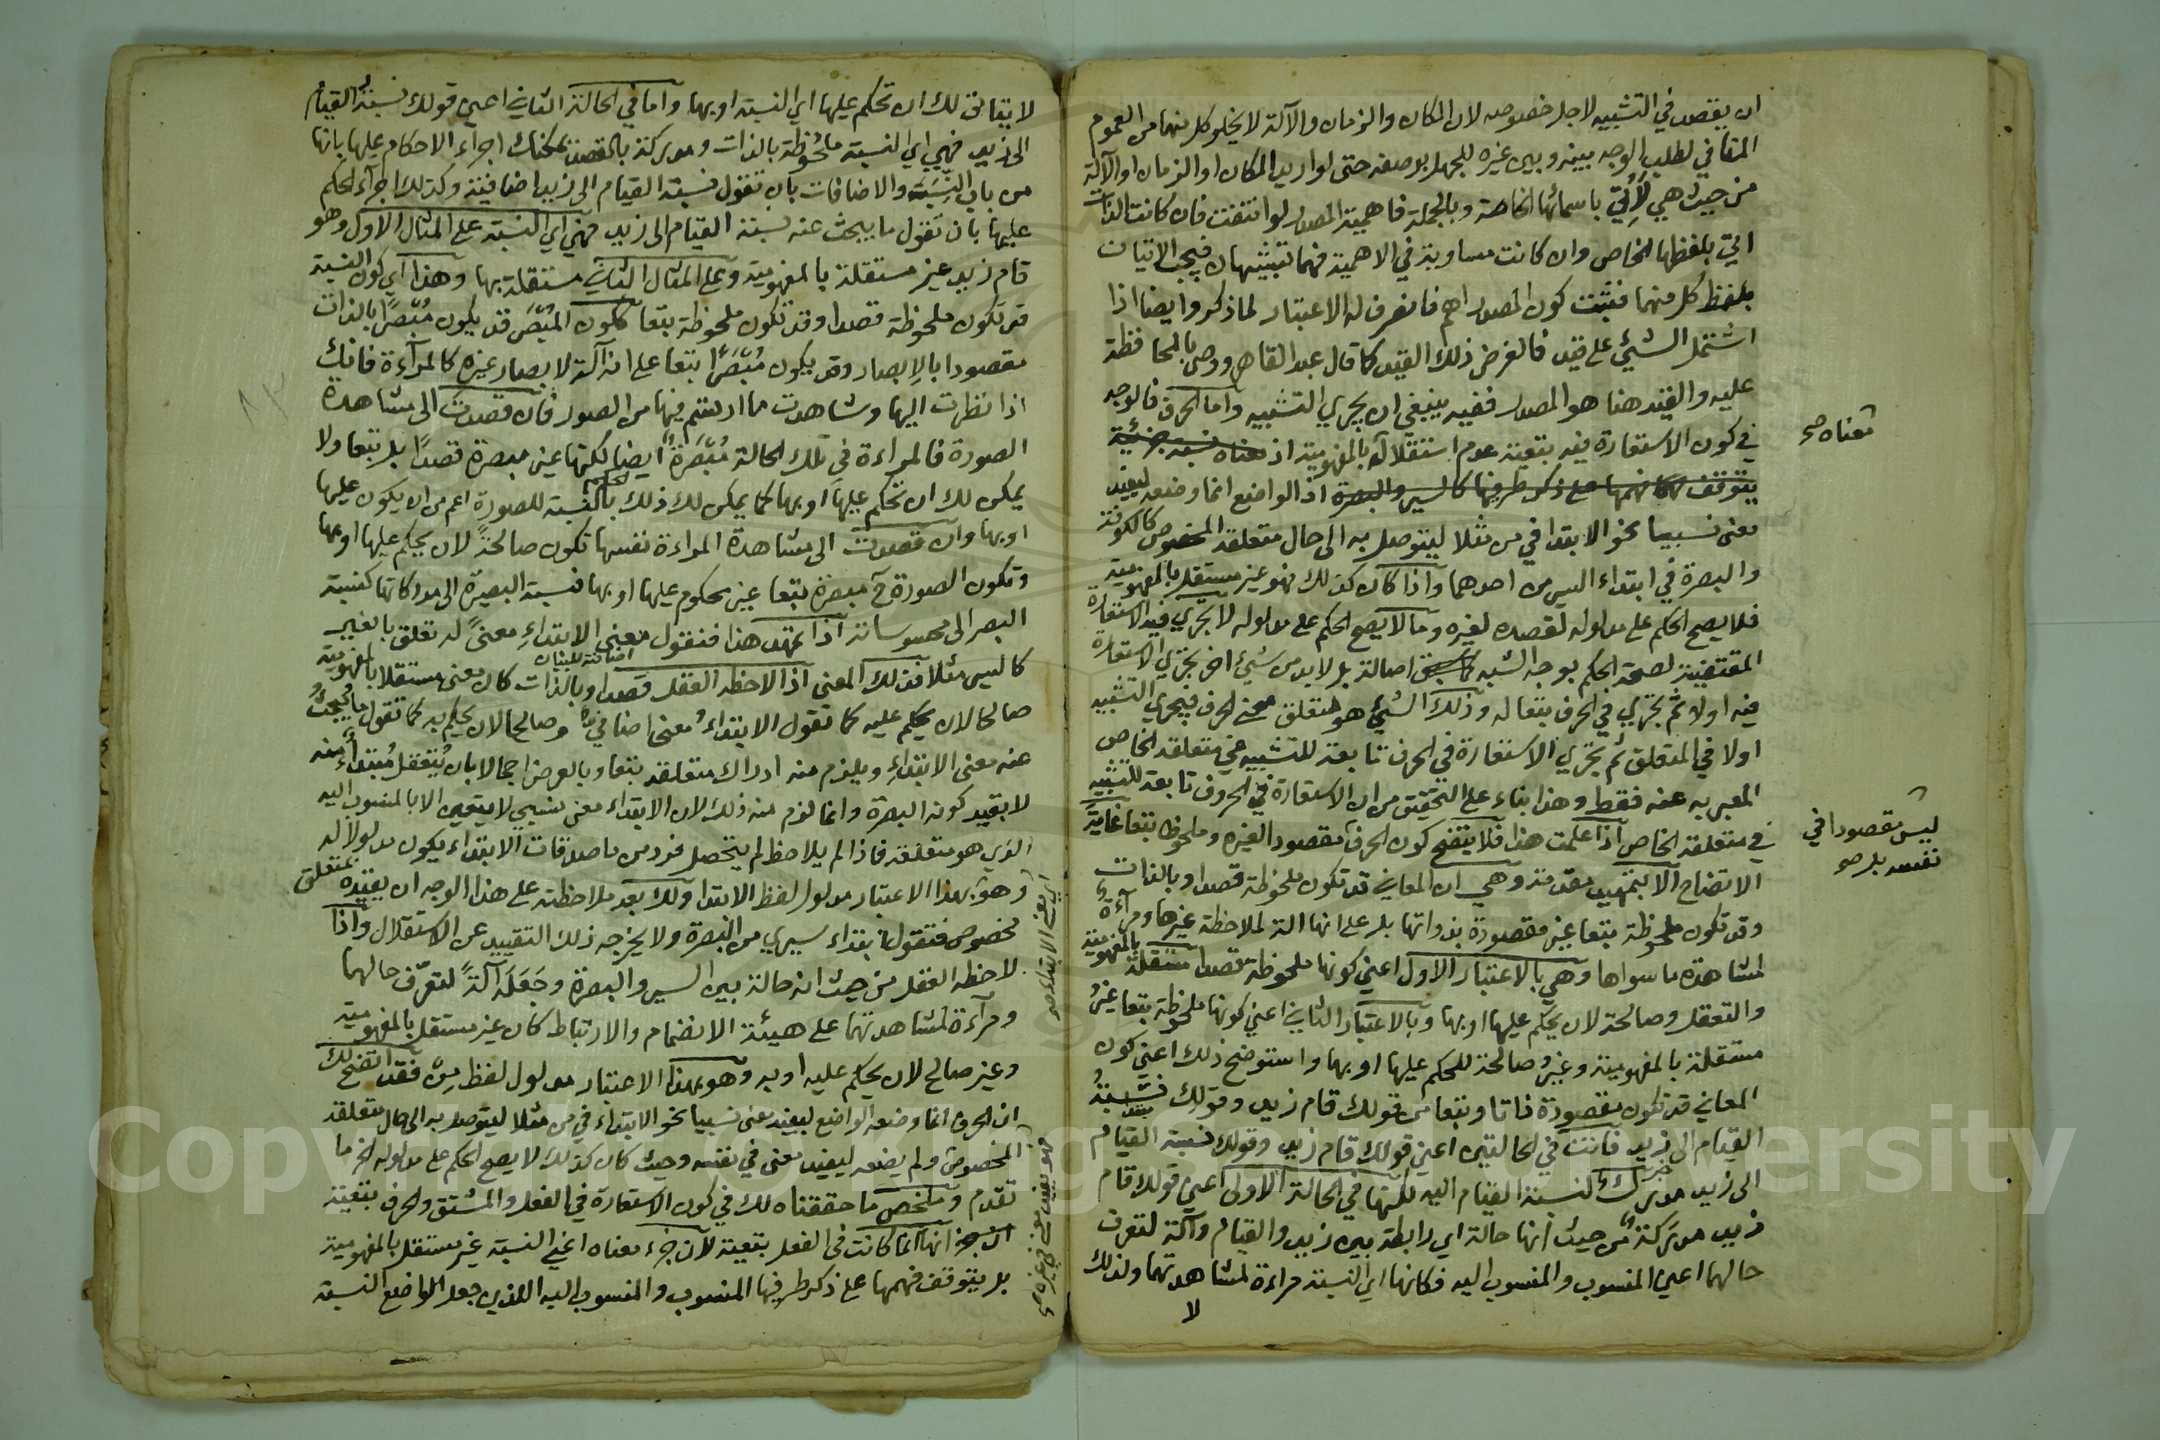 ان يقصد في التشبيه لاجل خصوصه لان المكان والزمان والآلة لا يخلو كل منها من العموم
المنافي لطلب الوجه بينه وبين غيره للجهل بوصفه حتى لو اريد المكان او الزمان او الآلة
من حيث هي لأتي باسمائها الخاصة وبالجملة فاهمية المصدر لو انتفت فان كانت الذات
اتي بلفظها الخاص وان كانت مساوية في الاهمية فهما تشبيهان فيجب الاتيان
بلفظ كل منهما فثبت كون المصدر اهم فانصرف له الاعتبار لما ذكر وايضا اذا
اشتمل الشيء على قيد فالغرض ذلك القيد كما قال عبد القاهر ووصى بالمحافظة
عليه والقيد هنا هو المصدر ففيه ينبغي ان يجري التشبيه واما الحرف فالوجه
في كون الاستعارة فيه تبعية عدم استقلاله بالمفهومية اذ معناه نسبة جزئية
يتوقف فهمها على ذكر طرفيها كالسير والبصرة اذ الواضع انما وضعه ليفيد
معنى نسبيا نحو الابتدا في من مثلا ليتوصل به الى حال متعلقه المخصوص كالكوفة
والبصرة في ابتداء السير من احدهما واذا كان كذلك فهو غير مستقل بالمفهومية
فلا يصح الحكم على مدلوله لقصده لغيره وما لا يصح الحكم على مدلوله لا يجري فيه الاستعارة
المقتضية لصحة الحكم بوجه الشبه كما سبق اصالة بل لا بد من شيء اخر تجري الاستعارة
فيه اولا ثم تجري في الحرف تبعا له وذلك الشيء هو متعلق معنى الحرف فيجري التشبيه
اولا في المتعلق ثم تجري الاستعارة في الحرف تابعة للتشبيه في متعلقه الخاص
المعبر به عنه فقط وهذا بناء على التحقيق من ان الاستعارة في الحروف تابعة للتشبيه
في متعلقه الخاص اذا علمت هذا فلا يتضح كون الحرف مقصودا لغيره وملحوظا تبعا غاية
الاتضاح الا بتمهيد مقدمة وهي ان المعاني قد تكون ملحوظة قصدا وبالذات
وقد تكون ملحوظة تبعا غير مقصودة بذواتها بل على انها الة لملاحظة غيرها ومرآءة
لمشاهدة ما سواها وهي بالاعتبار الاول اعني كونها ملحوظة قصدا مستقلة بالمفهومية
والتعقل وصالحة لان يحكم عليها او بها وبالاعتبار الثاني اعني كونها ملحوظة تبعا غير
مستقلة بالمفهومية وغير صالحة للحكم عليها او بها واستوضح ذلك اعني كون
المعاني قد تكون مقصودة ذاتا وتبعا من قولك قام زيد وقولك نسبة
القيام الى زيد فانت في الحالتين اعني قولك قام زيد وقولك نسبة القيام
الى زيد مدرك لنسبة القيام اليه لكنها في الحالة الاولى اعني قولك قام
زيد مدركة من حيث انها حالة اي رابطة بين زيد والقيام وآلة لتعرف
حالهما اعني المنسوب والمنسوب اليه فكانها اي النسبة مراءة لمشاهدتهما ولذلك
لا
معناه صح
ليس مقصودا في
نفسه بل صح
لا يتاتى لك ان تحكم عليها اي النسبة او بها واما في الحالة الثانية اعني قولك نسبة القيام
الى زيد فهي اي النسبة ملحوظة بالذات ومدركة بالقصد يمكنك اجراء الاحكام عليها بانها
من باب النسبة والاضافات بان تقول نسبة القيام الى زيد اضافية وكذلك اجراء الحكم
عليها بان تقول ما يبحث عنه نسبة القيام الى زيد فهي اي النسبة على المثال الاول وهو
قام زيد غير مستقلة بالمفهومية وعلى المثال الثاني مستقلة بها وهذا اي كون النسبة
قد تكون ملحوظة قصدا وقد تكون ملحوظة تبعا ككون المبصر قد يكون مبصرا بالذات
مقصودا بالابصار وقد يكون مبصرا تبعا على انه آلة لابصار غيره كالمرآءة فانك
اذا نظرت اليها وشاهدت ما ارتسم فيها من الصور فان قصدت الى مشاهدة
الصورة فالمراءة في تلك الحالة مبصرة ايضا لكنها غير مبصرة قصدا بل تبعا ولا
يمكن لك ان تحكم عليها او بها كما يمكن لك ذلك بالنسبة للصورة اعم من ان يكون عليها
او بها وان قصدت الى مشاهدة المراءة نفسها تكون صالحة لان يحكم عليها او بها
وتكون الصورة ح مبصرة تبعا غير محكوم عليها او بها فنسبة البصيرة الى مدركاتها كنسبة
البصر الى محسوساته اذا تمهد هذا فنقول معنى الابتداء معنى له تعلق بالغير
كالسير مثلا فذلك المعنى اذا لاحظه العقل قصدا وبالذات كان معنى مستقلا بالمفهومية
اضافة للبيان
صالحا لان يحكم عليه كما تقول الابتداء معنى اضافي وصالحا لان يحكم به كما تقول ما يبحث
عنه معنى الابتداء ويلزم منه ادراك متعلقه تبعا وبالعرض اجمالا بان يتعقل مبتداء منه
لا بقيد كونه البصرة وانما لزم منه ذلك لان الابتداء معنى نسبي لا يتعين الا بالمنسوب اليه
الذي هو متعلقه فاذا لم يلاحظ لم يتحصل فرد من ماصدقات الابتداء يكون مدلولا له
وهو بهذا الاعتبار مدلول لفظ الابتدا ولك بعد ملاحظته على هذا الوجه ان يقيده بمتعلق
مخصوص فتقول ابتداء سيري من البصرة ولا يخرجه ذلك التقييد عن الاستقلال واذا
لاحظه العقل من حيث انه حالة بين السير والبصرة وجعله آلة لتعرف حالهما
ومرآءة لمشاهدتهما على هيئة الانضمام والارتباط كان غير مستقل بالمفهومية
وغير صالح لان يحكم عليه او به وهو بهذا الاعتبار مدلول لفظ من فقد اتضح لك
ان الحرف انما وضعه الواضع ليفيد معنى نسبيا نحو الابتداء في من مثلا ليتوصل به الى حال متعلقه
المخصوص ولم يضعه ليفيد معنى في نفسه وحيث كان كذلك لا يصح الحكم على مدلوله الخ ما
تقدم وملخص ما حققناه لك في كون الاستعارة في الفعل والمشتق والحرف تبعية
انها انما كانت في الفعل تبعية لان جزء معناه اعني النسبة غير مستقل بالمفهومية
بل يتوقف فهمها على ذكر طرفيها المنسوب والمنسوب اليه اللذين جعل الواضع النسبة
اي معنى الابتداء صح
Copyright © King Saud University